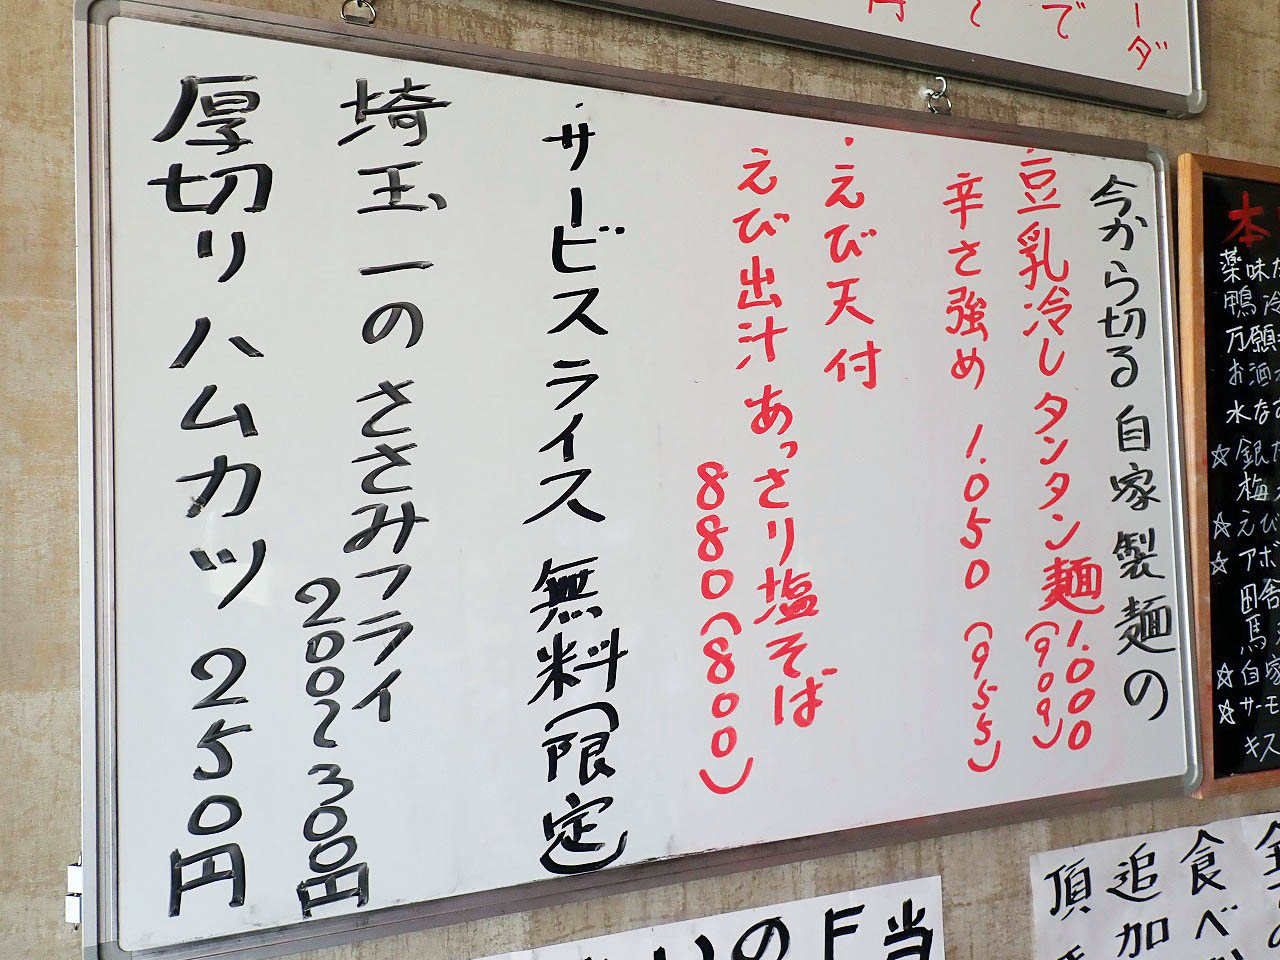 今から切る自家製麺の
・豆乳冷しタンタン麺1.000
(909)
辛さ強め 1.050 (955)
・えび天付
えび出汁あっさり塩そば
880(800)
・サービスライス無料(限定)
埼玉一のささみフライ
200~300円
厚切りハムカツ 250円
ーダ
で
円
本
薬味
鴨冷
万願
お酒
水な
☆銀
梅
☆えび
☆アボ
田舎
馬
☆自家
☆サーモ
キス
食べ
追加
頂
当